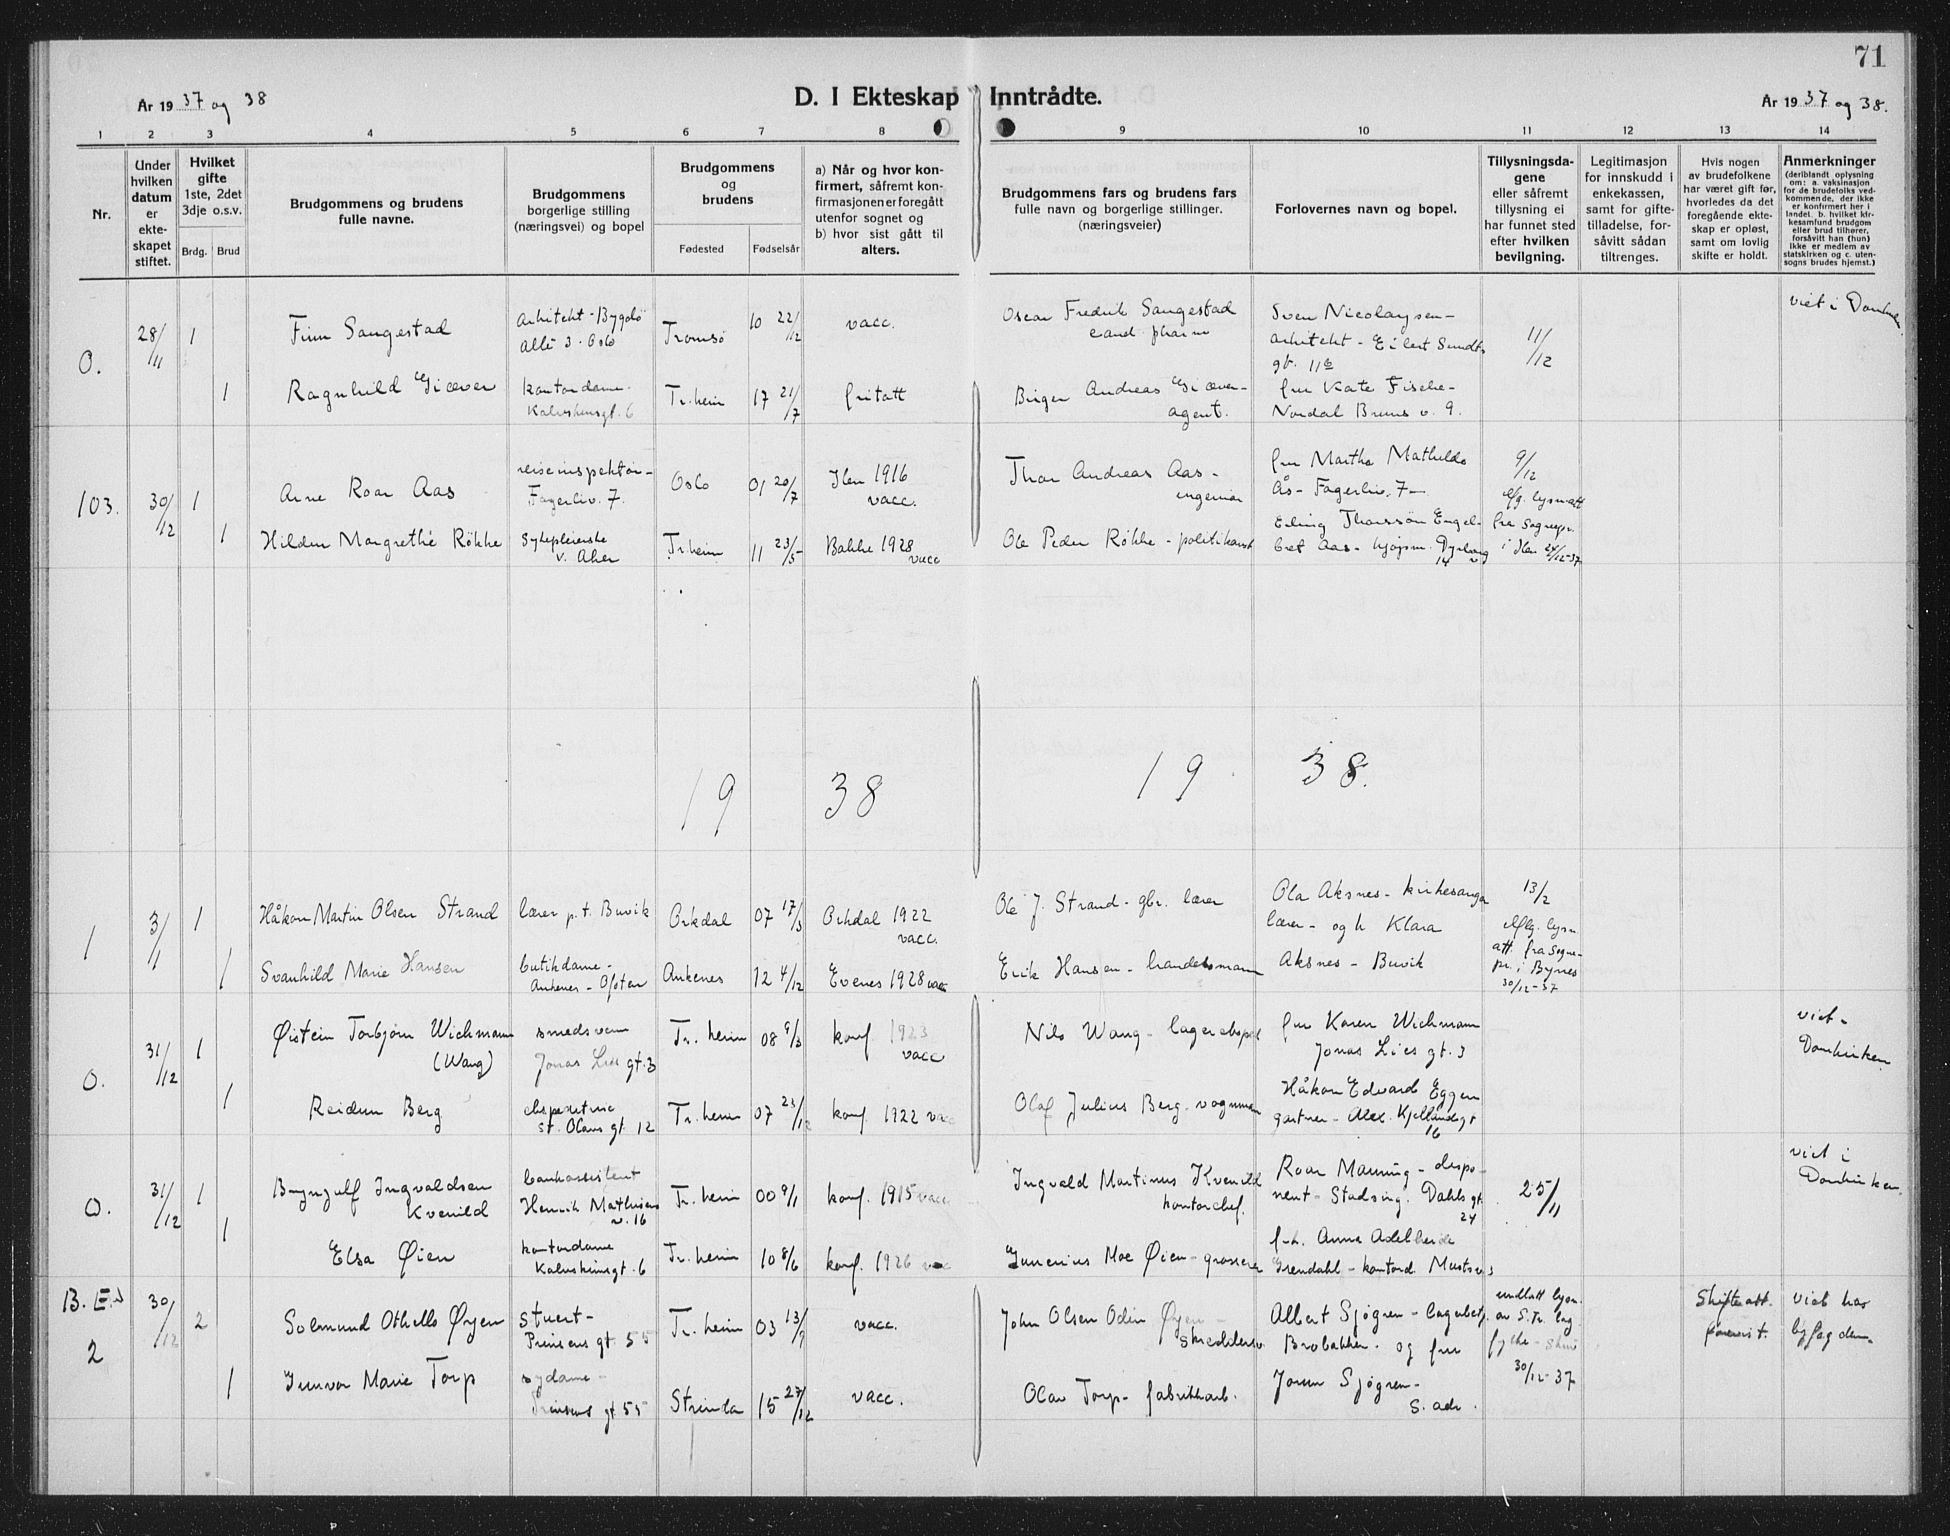 71
År 19 37 og 38
D. I Ekteskap Inntrådte.
År 19 37 og 38.
1 2 3 4 5 6 7 8 9 10 11 12 13 14
Nr.
Under
hvilken
datum
er
ekte-
skapet
stiftet.
Hvilket
gifte
1ste, 2det
3dje o.s.v.
Brdg. Brud
Brudgommens og brudens
fulle navne.
Brudgommens
borgerlige stilling
(næringsvei) og bopel
Brudgommens
og
brudens
Fødested Fødselsår
a) Når og hvor kon-
firmert, såfremt kon-
firmasjonen er foregått
utenfor sognet og
b) hvor sist gått til
alters.
Brudgommens fars og brudens fars
fulle navn og borgerlige stillinger.
(næringsveier)
Forlovernes navn og bopel.
Tillysningsda-
gene
eller såfremt
tillysning ei
har funnet sted
efter hvilken
bevilgning.
Legitimasjon
for innskudd i
enkekassen,
samt for gifte-
tilladelse, for-
såvitt sådan
tiltrenges.
Hvis nogen
av brudefolkene
har været gift før,
hvorledes da det
foregående ekte-
skap er opløst,
samt om lovlig
skifte er holdt.
Anmerkninger
(deriblandt oplysning
om: a. vaksinasjon
for de brudefolks ved-
kommende, der ikke
er konfirmert her i
landet. b. hvilket kir-
kesamfund brudgom
eller brud tilhører,
forsåvitt han (hun)
ikke er medlem av
statskirken og c. uten-
sogns brudes hjemst.)
0.
28/11
1
Finn Sangestad
arkitekt - Bygdø
allé 3. Oslo
Tromsø
10 22/12
vacc.
Oscar Fredrik Sangestad
cand. pharm
Sven Nicolaysen -
arkitekt - Eilert Sundts
gt. 11b
11/12
viet i Domkir
1
Ragnhild Giæver
kontordame.
Kalvskinsgt. 6
Tr.heim
17 21/7
fritatt
Birger Andreas Giæver -
agent.
fru Kate Fische -
Nordal Bruns v. 9.
103.
30/12
1
Arne Roar Aas
reiseinspektør -
Fagerliv. 7.
Oslo
01 20/7
Ilen 1916
vacc.
Thor Andreas Aas -
ingeniør
fru Martha Mathilde
Ås - Fagerliv. 7 -
9/12
efg. lysnatt
1
Hildur Margrethe Røkke
Sykepleierske
v. Aker
Tr.heim
11 23/5
Bakke 1928
vacc
Ole Peder Røkke - politikonst
Erling Thorssøn Engel-
bret Aas - kjøpm. Dyrborg
14 v
fra Sognepr.
i Ilen 24/12-37
19 38
19 38.
1
3/1
1
Håkon Martin Olsen Strand
lærer p.t. Buvik
Orkdal
07 17/3
Orkdal 1922
vacc.
Ole J. Strand - gbr. lærer
Ola Aksnes - kirkesanger
lærer - og h Klara
13/2
eflg. lysn.
1
Svanhild Marie Hansen
butikdame -
Ankenes - Ofoten
Ankenes
12 4/12
Evenes 1928 vacc
Erik Hansen - handelsmann
Aksnes - Buvik
att. fra Sogne-
pr. i Bynes
30/12-37
0.
31/12
1
Øistein Torbjørn Wichmann
(Wang)
smedsvenn
Jonas Lies gt. 3
Tr. heim
08 9/3
konf 1923
vacc
Nils Wang - lagereksped
fru Karen Wichmann
Jonas Lies gt. 3
viet -
Domkirken
1
Reidun Berg
ekspeditrise
St. Olavs gt. 12
Tr. heim
07 23/12
konf. 1922 vac
Olaf Julius Berg - vognman
Håkon Edvard Eggen
gartner - Alex. Kjellands gt
16
0.
31/12
1
Brynjulf Ingvaldsen
Kvenild
bankassistent
Henrik Mathisens
v. 16
Tr. heim
00 9/1
konf. 1915 vacc.
Ingvald Martinus Kvenild
kontorchef.
Roar Manning - dispo-
nent - Stadsing. Dahls gt.
24
25/11
viet i
Domkirken.
1
Elsa Øien
kontordame
Kalvskinsgt. 6
Tr. heim
10 8/6
konf. 1926
Gunerius Moe Øien - grosserer
frk. Anna Adelheide
Grendahl - kontord.
B. Ed
2
30/12
2
Solmund Othello Øyen
Stuert -
Prinsens gt 55
Tr. heim
03 13/7
vacc.
John Olsen Odin Øyen -
skredderso
Albert Sjøgren - lagerbetj.
Brobakken. og fru
undlatt lysn.
av S. Tr. lag
fylke - skriv
30/12-37
Skifteatt.
forevist.
viet hos
byfogden -
1
Gunvor Marie Torp
sydame -
Prinsens gt 55
Strinda
15 27/12
vacc.
Olav Torp - fabrikkarb.
Jorun Sjøgren -
S. adr.